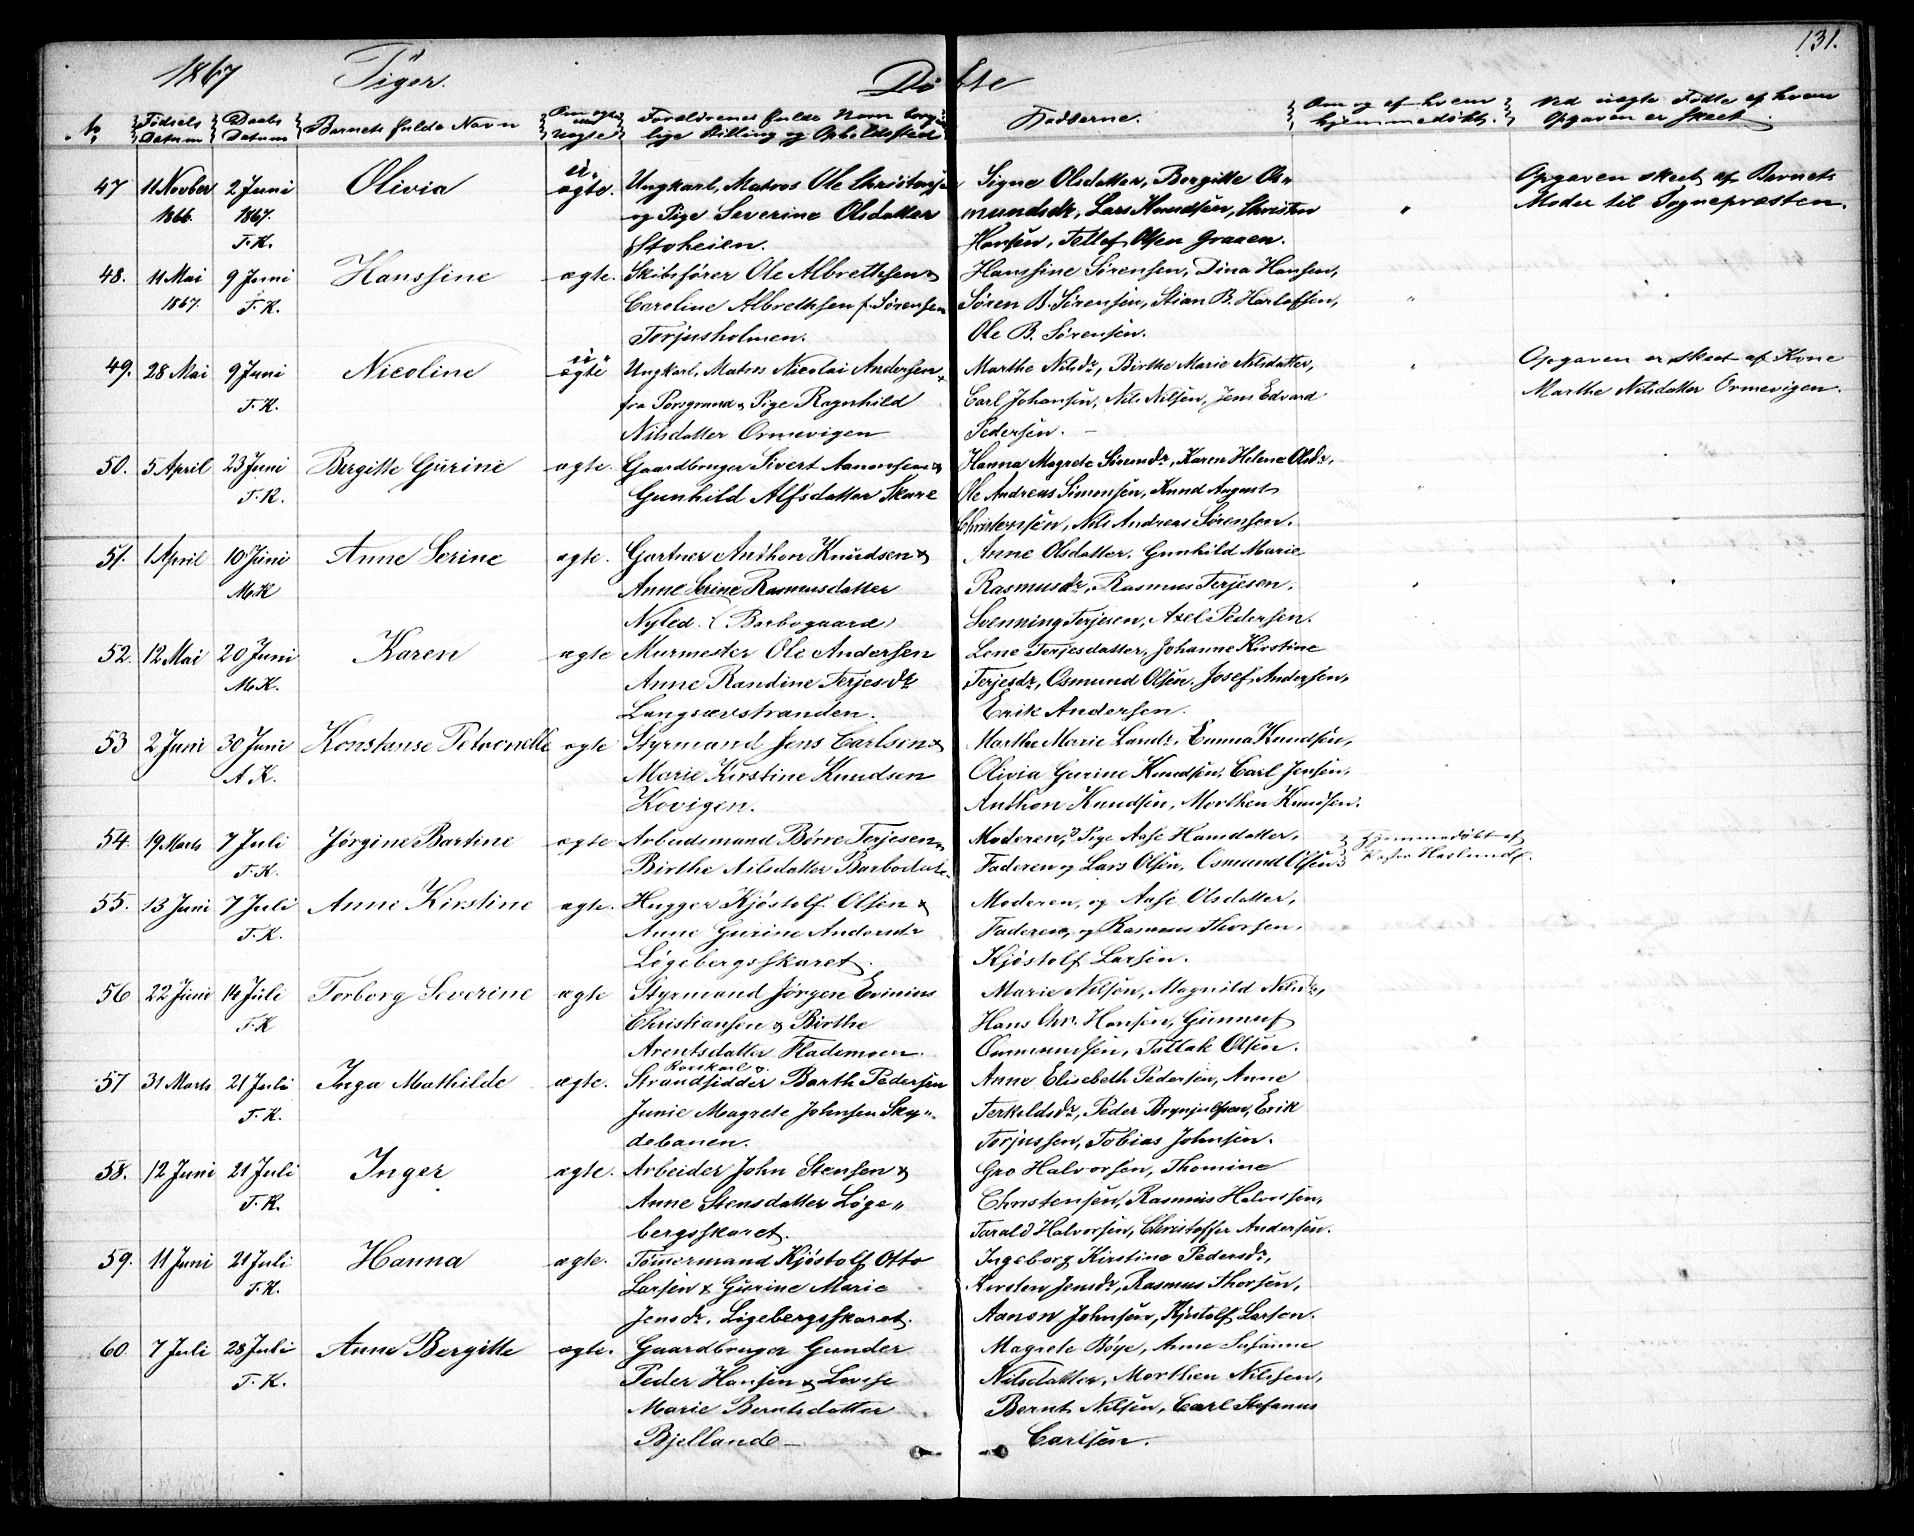 131.
1867 Piger. Døbte
No Fødsels Datum Daabs Datum Barnets fulde Navn Om ægte eller uægte Forældrenes fulde Navn borgerlige Stilling og Opholdssted Fadderne. Om og af hvem hjemmedøbt. Ved uægte Fødte af hvem Opgaven er skeet.
47 11 Novber 2 Juni Olivia u- Ungkarl, Matros Ole Christensen Signe Olsdatter, Bergitte Os- Opgaven skeet af Barnets
1866. 1867. ægte. og Pige Severine Olsdatter mundsdr, Lars Knudsen, Christen " Moder til Sognepræsten.
T.K. Stoheien. Hansen, Tellef Olsen Graaen.
48. 11 Mai 9 Juni Hanssine ægte. Skibsfører Ole Albrethsen & Hanssine Sørensen, Dina Hansen,
1867. T.K. Caroline Albrethsen f. Sørensen Søren B. Sørensen, Stian B. Harlofsen, "
Torjusholmen. Ole B. Sørensen.
49. 28 Mai 9 Juni Nicoline u- ægte Ungkarl, Matros Nicolai Andersen Marthe Nilsdr, Birthe Marie Nilsdatter, " Opgaven er skeet af Kone
T.K. fra Porsgrund & Pige Ragnhild Carl Johansen, Nils Nilsen, Jens Edvard Marthe Nilsdatter Ormevigen.
Nilsdatter Ormevigen Pedersen. -
50. 5 April 23 Juni Bergitte Gurine ægte. Gaardbruger Sivert Aanonsen & Hanna Magrete Simensdr, Karen Helene Olsdr,
T.K. Gunhild Alfsdatter Skare Ole Andreas Simonsen, Knud August
Christensen, Nils Andreas Sørensen.
51. 1 April 10 Juni Anne Serine ægte. Gartner Anthon Knudsen & Anne Olsdatter, Gunhild Marie
M.K Anne Serine Rasmusdatter Rasmusdr, Rasmus Terjesen,
Nyled. (Barbogaard) Svenning Terjesen, Axel Pedersen.
52. 12 Mai 20 Juni Karen ægte Murmester Ole Andersen Lene Terjesdatter, Johanne Kirstine
M.K. Anne Randine Terjesdr Terjesdr, Osmund Olsen, Josef Andersen,
Langsævstranden. Erik Andersen.
53 2 Juni 30 Juni Konstanse Petronelle ægte Styrmand Jens Carlsen & Marthe Marie Larsdr, Emma Knudsen,
A.K. Marie Kirstine Knudsen Olivia Gurine Knudsen, Carl Jensen,
Kovigen. Anthon Knudsen, Morthen Knudsen.
54. 19 Marts 7 Juli Jørgine Bertine ægte Arbeidsmand Børre Terjesen & Moderen, & Pige Aase Hansdatter, Hjemmedøbt af
T.K. Birthe Nilsdatter Barbodal. Faderen og Lars Olsen, Osmund Olsen. Haslund.
55. 13 Juni 7 Juli Anne Kirstine ægte. Hugger Kjøstolf Olsen & Moderen, og Aase Olsdatter,
T.K. Anne Gurine Andersdr Faderen, og Rasmus Thorsen,
Løgebergsskaret. Kjøstolf Larsen.
56 22 Juni 14 Juli Torborg Severine ægte Styrmand Jørgen Evinius Marie Nilsen, Magnild Nilsdr,
T.K Christiansen & Birthe Hans Chr. Hansen, Gunnuf
Arentsdatter Flademoen. Osmundsen, Tallak Olsen.
57 31 Marts 21 Juli Inga Mathilde ægte. Strandsidder Barth Pedersen Anne Elisebeth Pedersen, Anne
T.K. Junie Magrete Johnsen Sky- Terkeldsdr, Peder Brynjulfsen, Erik
debanen. Torjussen, Tobias Johnsen.
58. 12 Juni 21 Juli Inger ægte. Arbeider John Stensen & Gro Halvorsen, Thomine
T.K. Anne Stensdatter Løge- Christensen, Rasmus Halvorsen,
bergsskaret. Tarald Halvorsen, Christoffer Andersen.
59. 11 Juni 21 Juli Hanna ægte. Tømmermand Kjøstolf Otto Ingeborg Kirstine Pedersdr,
T.K. Larsen & Gurine Marie Kirsten Jensdr, Rasmus Thorsen,
Jensdr, Løgebergsskaret. Aanon Johnsen, Kjøstolf Larsen.
60. 7 Juli 28 Juli Anne Bergitte ægte. Gaardbruger Gunder Magrete Bøye, Anne Susanne
T.K. Peder Hansen & Lovise Nilsdatter, Morthen Nilssen,
Marie Berntsdatter Bernt Nilsen, Carl Stefanus
Bjelland - Carlsen.